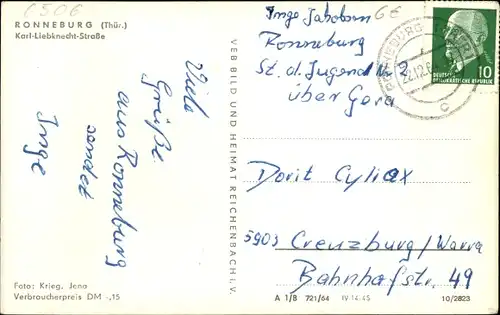 6506
RONNEBURG (Thür.)
Karl-Liebknecht-Straße
Viele
Grüße
aus Ronneburg
sendet
Inge
Foto: Krieg, Jena
Verbraucherpreis DM -,15
VEB BILD UND HEIMAT REICHENBACH i. V.
Inge Jakobson
Ronneburg
St. d. Jugend Nr 2
über Gera
RONNEBURG
c
DEUTSCHE
10
Dorit Cyliax
5903 Creuzburg/Werra
Bahnhofstr. 49
A 1/B 721/64 IV-14-45 10/2823